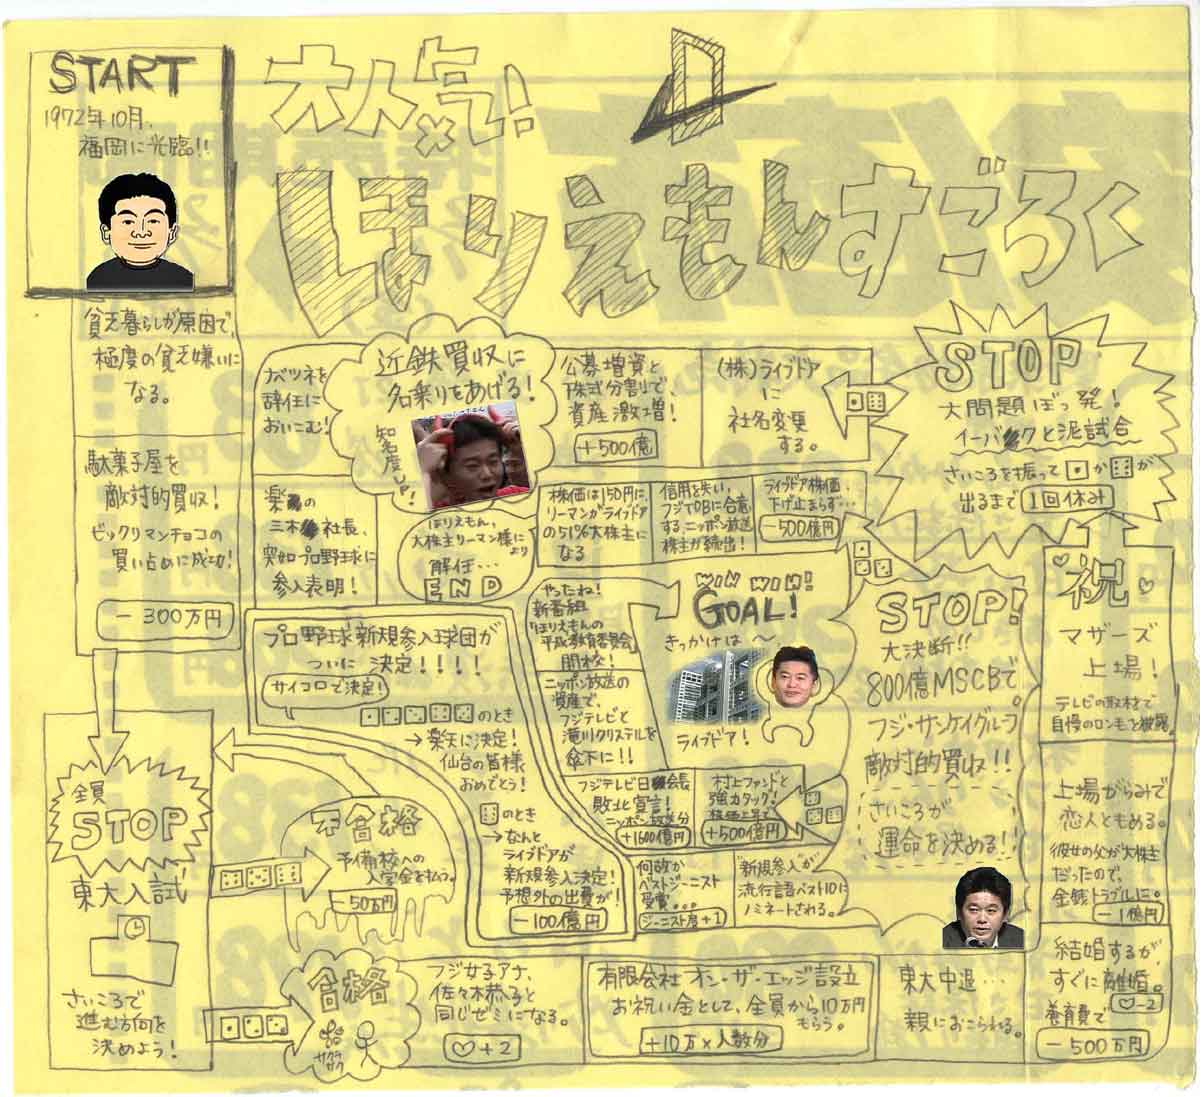 START
1972年10月、
福岡に光臨!!
大人気!
ほりえもんすごろく
貧乏暮らしが原因で、
極度の貧乏嫌いに
なる。
駄菓子屋を
敵対的買収!
ビックリマンチョコの
買い占めに成功!
−300万円
全員
STOP
東大入試
さいころで
進む方向を
決めよう!
不合格
予備校への
入学金を払う。
−50万円
合格
サクラ
サク
フジ女子アナ、
佐々木恭子と
同じゼミになる。
♡+2
有限会社 オン・ザ・エッジ設立
お祝い金として、全員から10万円
もらう。
+10万×人数分
東大中退…
親におこられる。
結婚するが、
すぐに離婚。
♡−2
養育費で
−500万円
上場がらみで
恋人ともめる。
彼女の父が大株主
だったので、
金銭トラブルに。
−1億円
祝
マザーズ
上場!
テレビの取材で
自慢のロンもを披露。
STOP
大問題ぼっ発!
イーバ クと泥試合
さいころを振って か が
出るまで 1回休み
(株)ライブドア
に
社名変更
する。
公募増資と
株式分割りで、
資産激増!
+500億
近鉄買収に
名乗りをあげる!
知名度UP!
ナベツネを
辞任に
おいこむ!
楽 の
三木 社長、
突如プロ野球に
参入表明!
プロ野球新規参入球団が
ついに 決定!!!!
サイコロで決定!
のとき
→楽天に決定!
仙台の皆様、
おめでとう!
のとき
→なんと
ライブドアが
新規参入決定!
予想外の出費が!
−100億円
何故か
ベストジーニスト
受賞...
ジーニスト度+1
"新規参入"が
流行語ベスト10に
ノミネートされる。
STOP!
大決断!!
800億MSCBで
フジ・サンケイグループ
敵対的買収!!
さいころが
運命を決める!!
ライブドア株価、
下げ止まらず…
−500億円
信用を失い、
フジTOBに合意
する、ニッポン放送
株主が続出!
株価は150円に。
リーマンがライブドア
の51%大株主に
なる
ほりえもん、
大株主リーマン様に
より
解任…
END
村上ファンドと
強力タッグ!
+500億円
フジテレビ日 会長
敗北宣言!
ニッポン放送分
+1600億円
ニッポン放送の
資産で、
フジテレビと
滝川クリステルを
傘下に!!
やったね!
新番組
「ほりえもんの
平成教育委員会」
開校!
WIN WIN!
GOAL!
きっかけは〜
ライブドア!